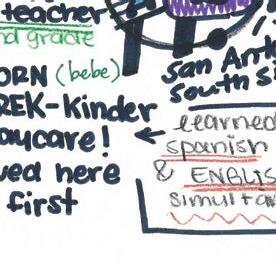 teacher
nd grade
ORN (bebe)
REK-Kinder
aycare!
ved here
first
San Ant
South S
learned
spanish
& ENGLIS
simultan